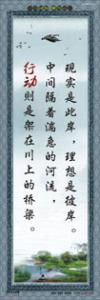 现实是此岸，理想是彼岸。
中间隔着湍急的河流，
行动则是架在川上的桥梁。